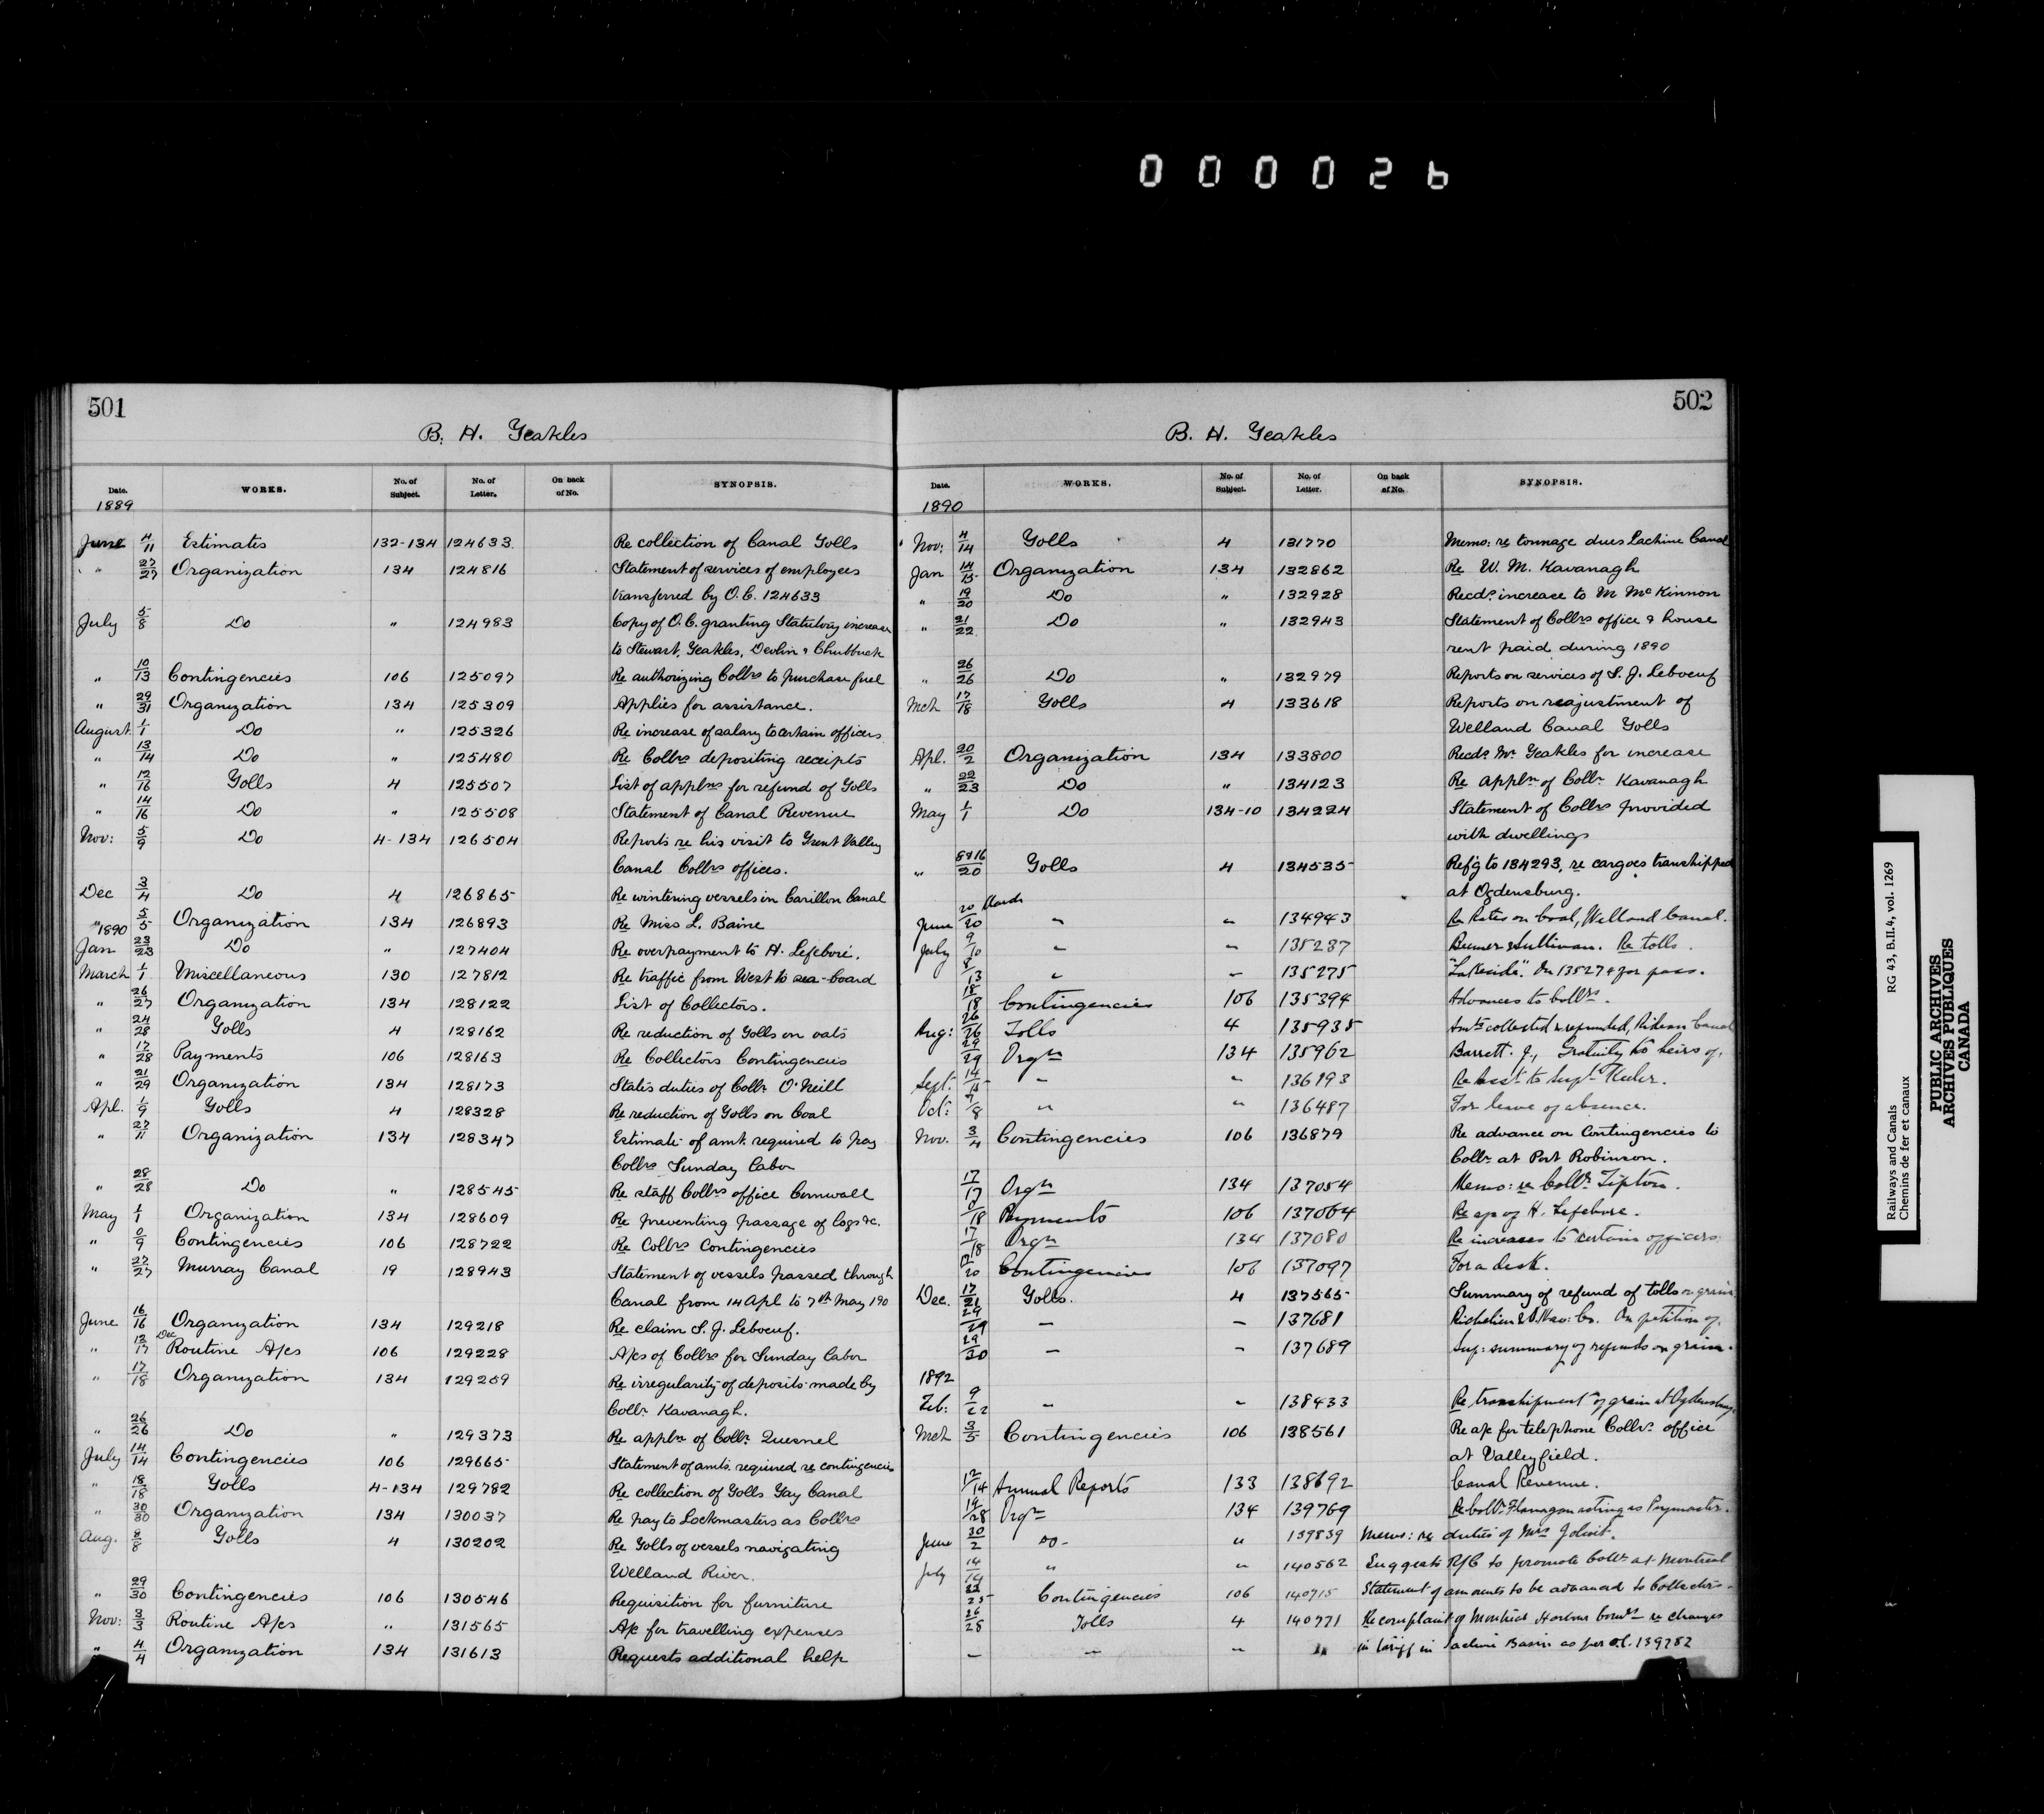 0 0 0 0 2 6
501
B. H. Teakles
Date. WORKS. No. of Subject. No. of Letter. On back of No. SYNOPSIS.
1889
June 4/11 Estimates 132-134 124633 Re collection of Canal Tolls
" 27/27 Organization 134 124816 Statement of services of employees
transferred by O.C. 124633
July 5/8 Do " 124983 Copy of O.C. granting Statutory increase
to Stewart, Teakles, Devlin & Chubbuck
" 10/13 Contingencies 106 125097 Re authorizing Collrs to purchase fuel
" 29/31 Organization 134 125309 Applies for assistance.
August 1/1 Do " 125326 Re increase of salary to certain officers
" 13/14 Do " 125480 Re Collrs depositing receipts
" 12/16 Tolls 4 125507 List of applns for refund of Tolls
" 14/16 Do " 125508 Statement of Canal Revenue
Nov: 5/9 Do 4-134 126504 Reports re his visit to Trent Valley
Canal Collrs offices.
Dec 3/4 Do 4 126865 Re wintering vessels in Carillon Canal
" 5/5 Organization 134 126893 Re Miss L. Baine
1890
Jan 23/23 Do " 127404 Re overpayment to H. Lefebvre.
March 1/1 Miscellaneous 130 127812 Re traffic from West to sea-board
" 26/27 Organization 134 128122 List of Collectors.
" 24/28 Tolls 4 128162 Re reduction of Tolls on oats
" 17/28 Payments 106 128163 Re Collectors Contingencies
" 21/29 Organization 134 128173 States duties of Collr O'Neill
Apl. 1/9 Tolls 4 128328 Re reduction of Tolls on Coal
" 27/11 Organization 134 128347 Estimate of amt. required to pay
Collrs Sunday Labor
" 28/28 Do " 128545 Re staff Collrs office Cornwall
May 1/1 Organization 134 128609 Re preventing passage of logs &c.
" 6/9 Contingencies 106 128722 Re Collrs Contingencies
" 27/27 Murray Canal 19 128943 Statement of vessels passed through
Canal from 14 Apl to 7th May '90
June 16/16 Organization 134 129218 Re claim S. J. Leboeuf.
" 12 Dec/17 Routine A/cs 106 129228 A/cs of Collrs for Sunday Labor
" 17/18 Organization 134 129259 Re irregularity of deposits made by
Collr Kavanagh.
" 26/26 Do " 129373 Re appln of Collr Quesnel
July 14/14 Contingencies 106 129665 Statement of amts. required re contingencies
" 18/18 Tolls 4-134 129782 Re collection of Tolls Tay Canal
" 30/30 Organization 134 130037 Re pay to Lockmasters as Collrs
Aug. 8/8 Tolls 4 130202 Re Tolls of vessels navigating
Welland River.
" 29/30 Contingencies 106 130546 Requisition for furniture
Nov: 3/3 Routine A/cs " 131565 A/c for travelling expenses
" 4/4 Organization 134 131613 Requests additional help
502
B. H. Teakles
Date. WORKS. No. of Subject. No. of Letter. On back of No. SYNOPSIS.
1890
Nov: 4/14 Tolls 4 131770 Memo: re tonnage dues Lachine Canal
Jan 14/15 Organization 134 132862 Re W. M. Kavanagh
" 19/20 Do " 132928 Recds increase to M McKinnon
" 21/22 Do " 132943 Statement of Collrs office & house
rent paid during 1890
" 26/26 Do " 132979 Reports on services of S. J. Leboeuf
Mch 17/18 Tolls 4 133618 Reports on reajustment of
Welland Canal Tolls
Apl. 20/2 Organization 134 133800 Recds Mr Teakles for increase
" 22/23 Do " 134123 Re appln of Collr Kavanagh
May 1/1 Do 134-10 134224 Statement of Collrs provided
with dwellings
" 8&16/20 Tolls 4 134535 Ref'g to 134293, re cargoes transhipped
at Ogdensburg.
June 20 March/20 " " 134943 Re Rates on Coal, Welland Canal.
July 9/10 " " 135237 & Sullivan. Re tolls.
8/13 " " 135275 "Lakeside". On 135274 for pass.
18/18 Contingencies 106 135394 Advances to Collrs.
Aug: 26/26 Tolls 4 135935 Amts collected & refunded, Rideau Canal
29/29 Orgn 134 135962 Barrett. J., Gratuity to heirs of.
Sept. 14/15 " " 136193 Re Asst. to Supt
Oct: 7/8 " " 136487 For leave of absence.
Nov. 3/4 Contingencies 106 136879 Re advance on Contingencies to
Collr at Port Robinson.
17/17 Orgn 134 137054 Memo: re Collr Tipton.
17/18 Payments 106 137064 Re a/c of H. Lefebvre.
17/18 Orgn 134 137080 Re increases to certain officers
19/20 Contingencies 106 137097 For a desk.
Dec. 17/21 Tolls. 4 137565 Summary of refund of tolls on grain
29/29 — — 137681 Richelieu & O. Nav: Co. On petition of.
29/30 — — 137689 Sup: summary of refunds on grain.
1892
Feb: 9/22 " " 138433 Re transhipment of grain at Ogdensburg.
Mch 3/5 Contingencies 106 138561 Re a/c for telephone Collrs office
at Valleyfield.
12/14 Annual Reports 133 138692 Canal Revenue.
19/28 Orgn 134 139769 Re Collr Flanagan acting as Paymaster.
June 30/2 do- " 139839 Memo: re duties of Mrs Joliat.
July 14/14 " " 140562 Suggests R/C to promote Collr at Montreal
22/25 Contingencies 106 140715 Statement of amounts to be advanced to Collectors
26/28 Tolls 4 140771 Re complaint of Montreal Harbour Comrs re changes
— — " " in tariff in Lachine Basin as per O.C. 139282
RG 43, B.II.4, vol. 1269
Railways and Canals
Chemins de fer et canaux
PUBLIC ARCHIVES
ARCHIVES PUBLIQUES
CANADA